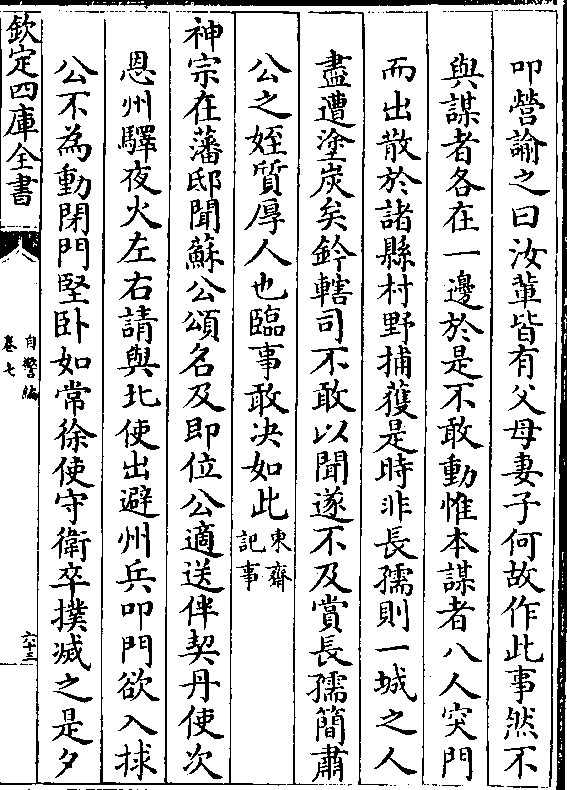 叩營諭之曰汝軰皆有父母妻子何故作此事然不
與謀者各在一邊於是不敢動惟本謀者八人突門
而出散於諸縣村野捕獲是時非長孺則一城之人
盡遭塗炭矣鈐轄司不敢以聞遂不及賞長孺簡肅
公之姪質厚人也臨事敢决如此東齋記事
神宗在藩邸聞蘇公頌名及即位公適送伴契丹使次
恩州驛夜火左右請與北使出避州兵叩門欲入捄
公不為動閉門堅卧如常徐使守衛卒撲滅之是夕
欽定四庫全書
自警編
卷七
六十三